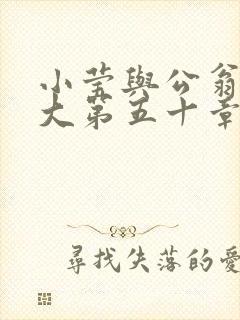 小莹與公翁
大第五十章
尋找失落的愛